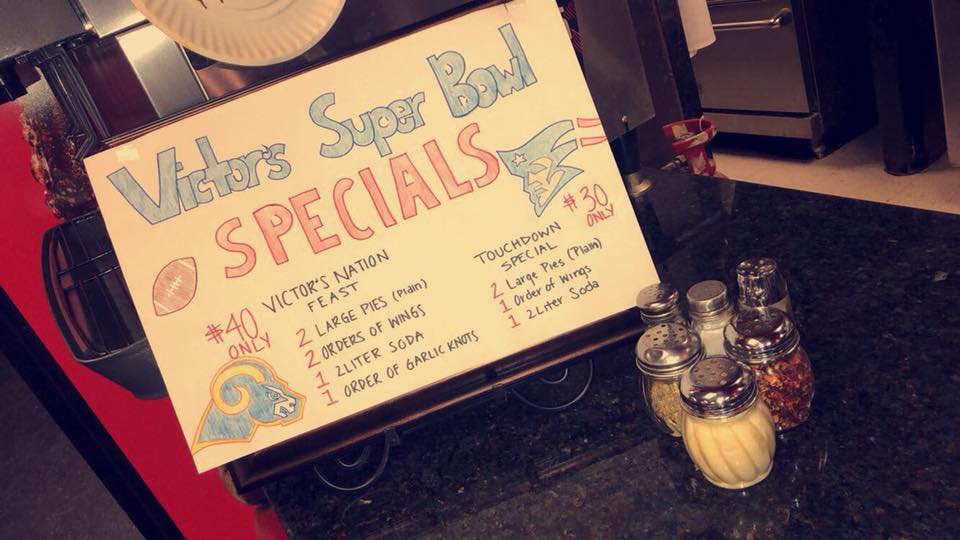 Victor's Super Bowl
SPECIALS
#40
ONLY
VICTOR'S NATION
FEAST
2 LARGE PIES (Plain)
2 ORDERS OF WINGS
1 2LITER SODA
1 ORDER OF GARLIC KNOTS
#30
ONLY
TOUCHDOWN
SPECIAL
2 Large Pies (Plain)
1 Order of Wings
1 2Liter Soda